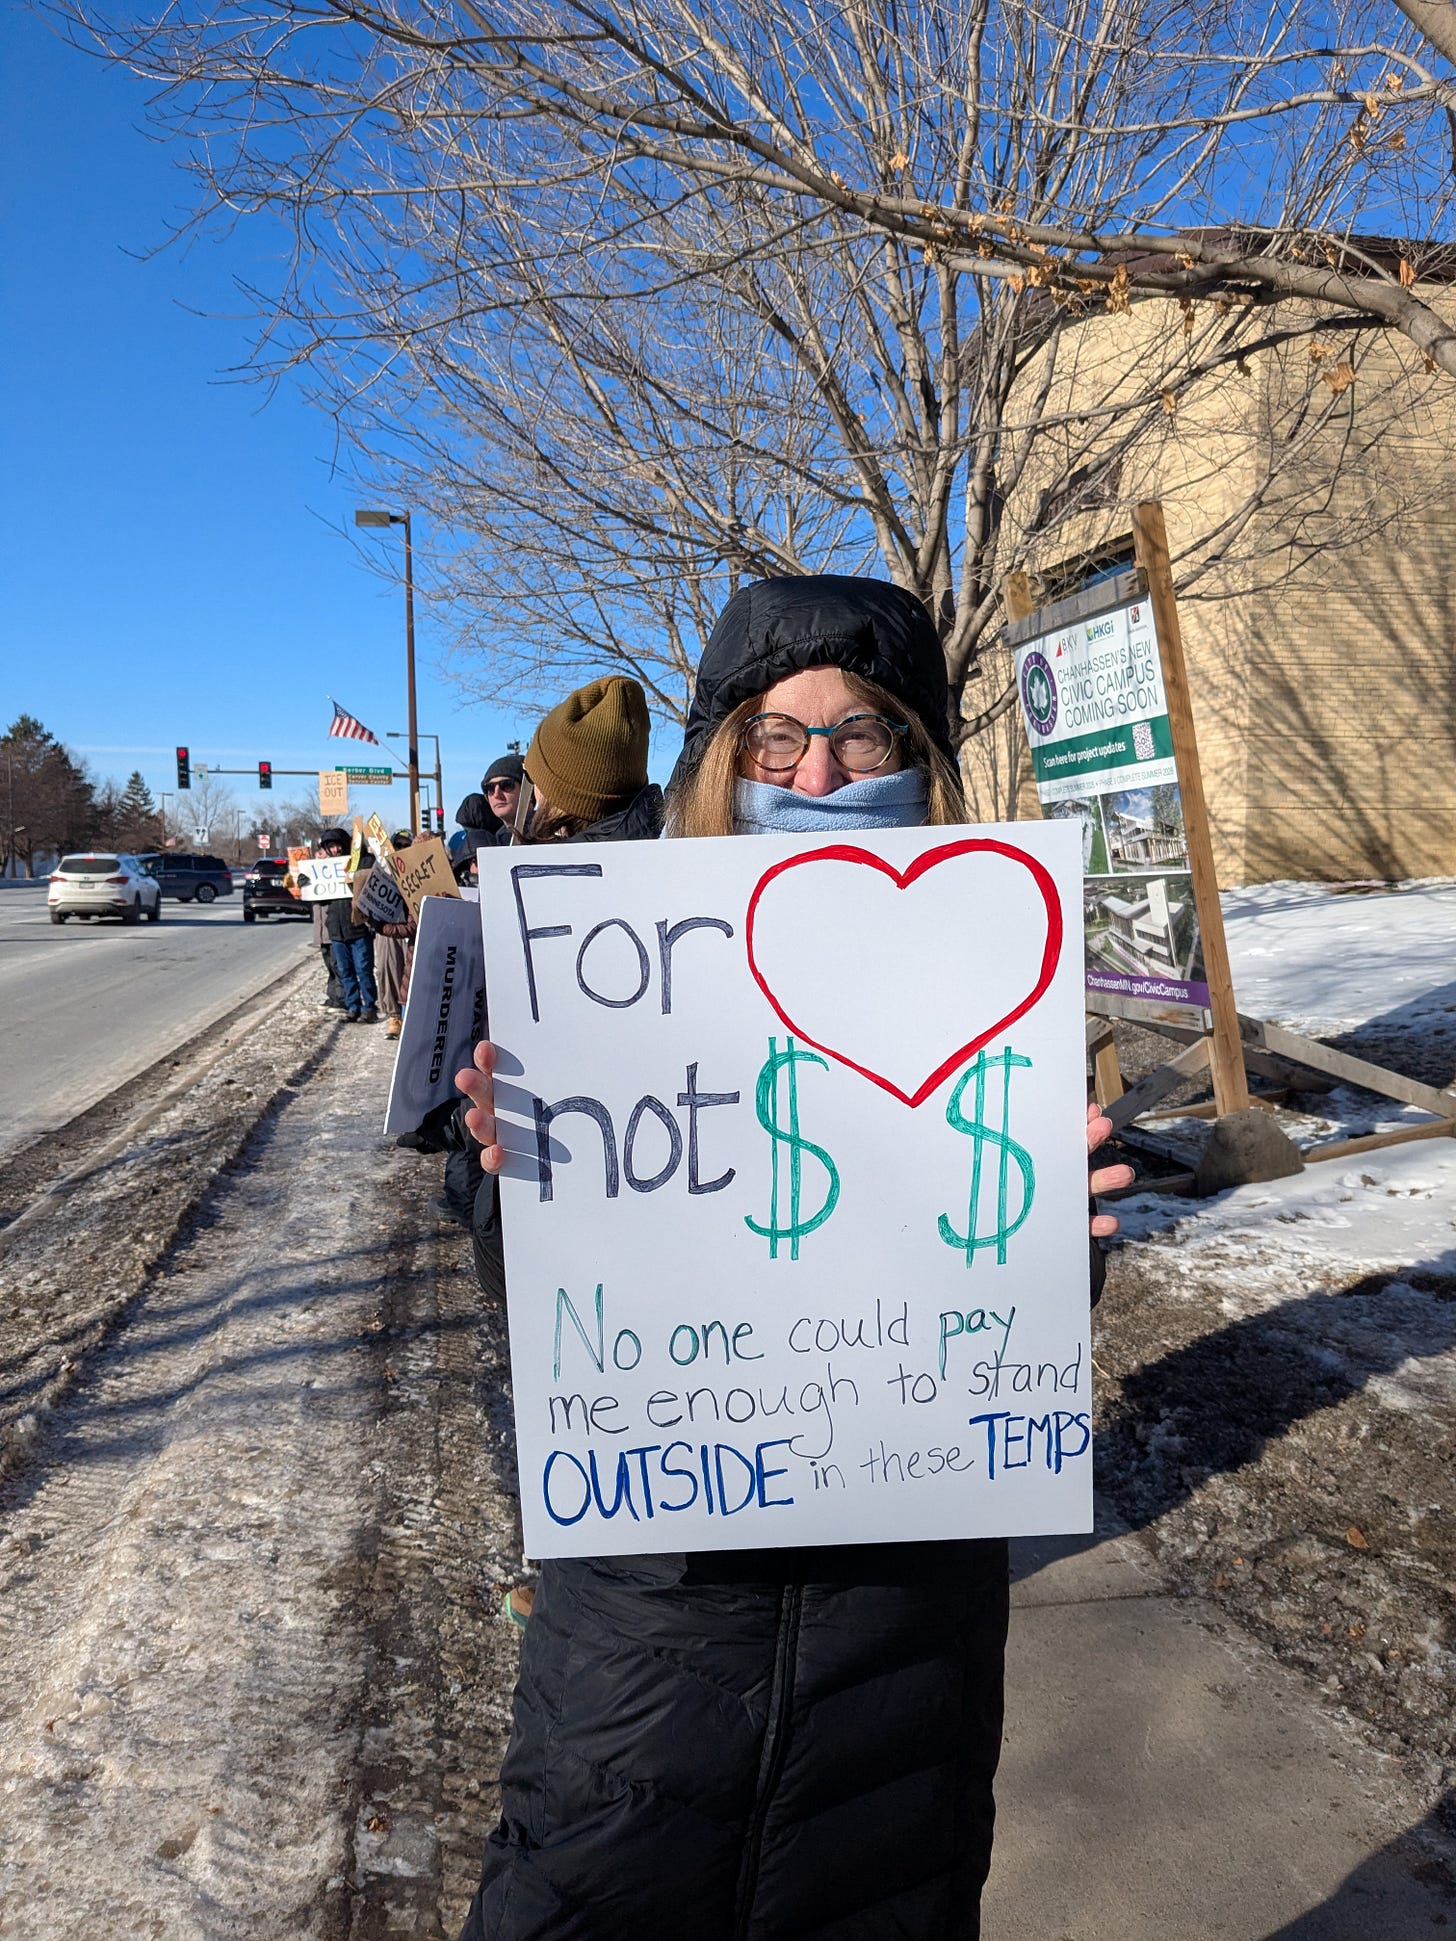 For
not $ $
No one could pay
me enough to stand
OUTSIDE in these TEMPS
MURDERED
WAS
ICE
OUT
ICE
OUT
NO
SECRET
ICE OUT
Kerber Blvd
BKV
HKGi
CHANHASSEN'S NEW
CIVIC CAMPUS
COMING SOON
Scan here for project updates
ChanhassenMN.gov/CivicCampus